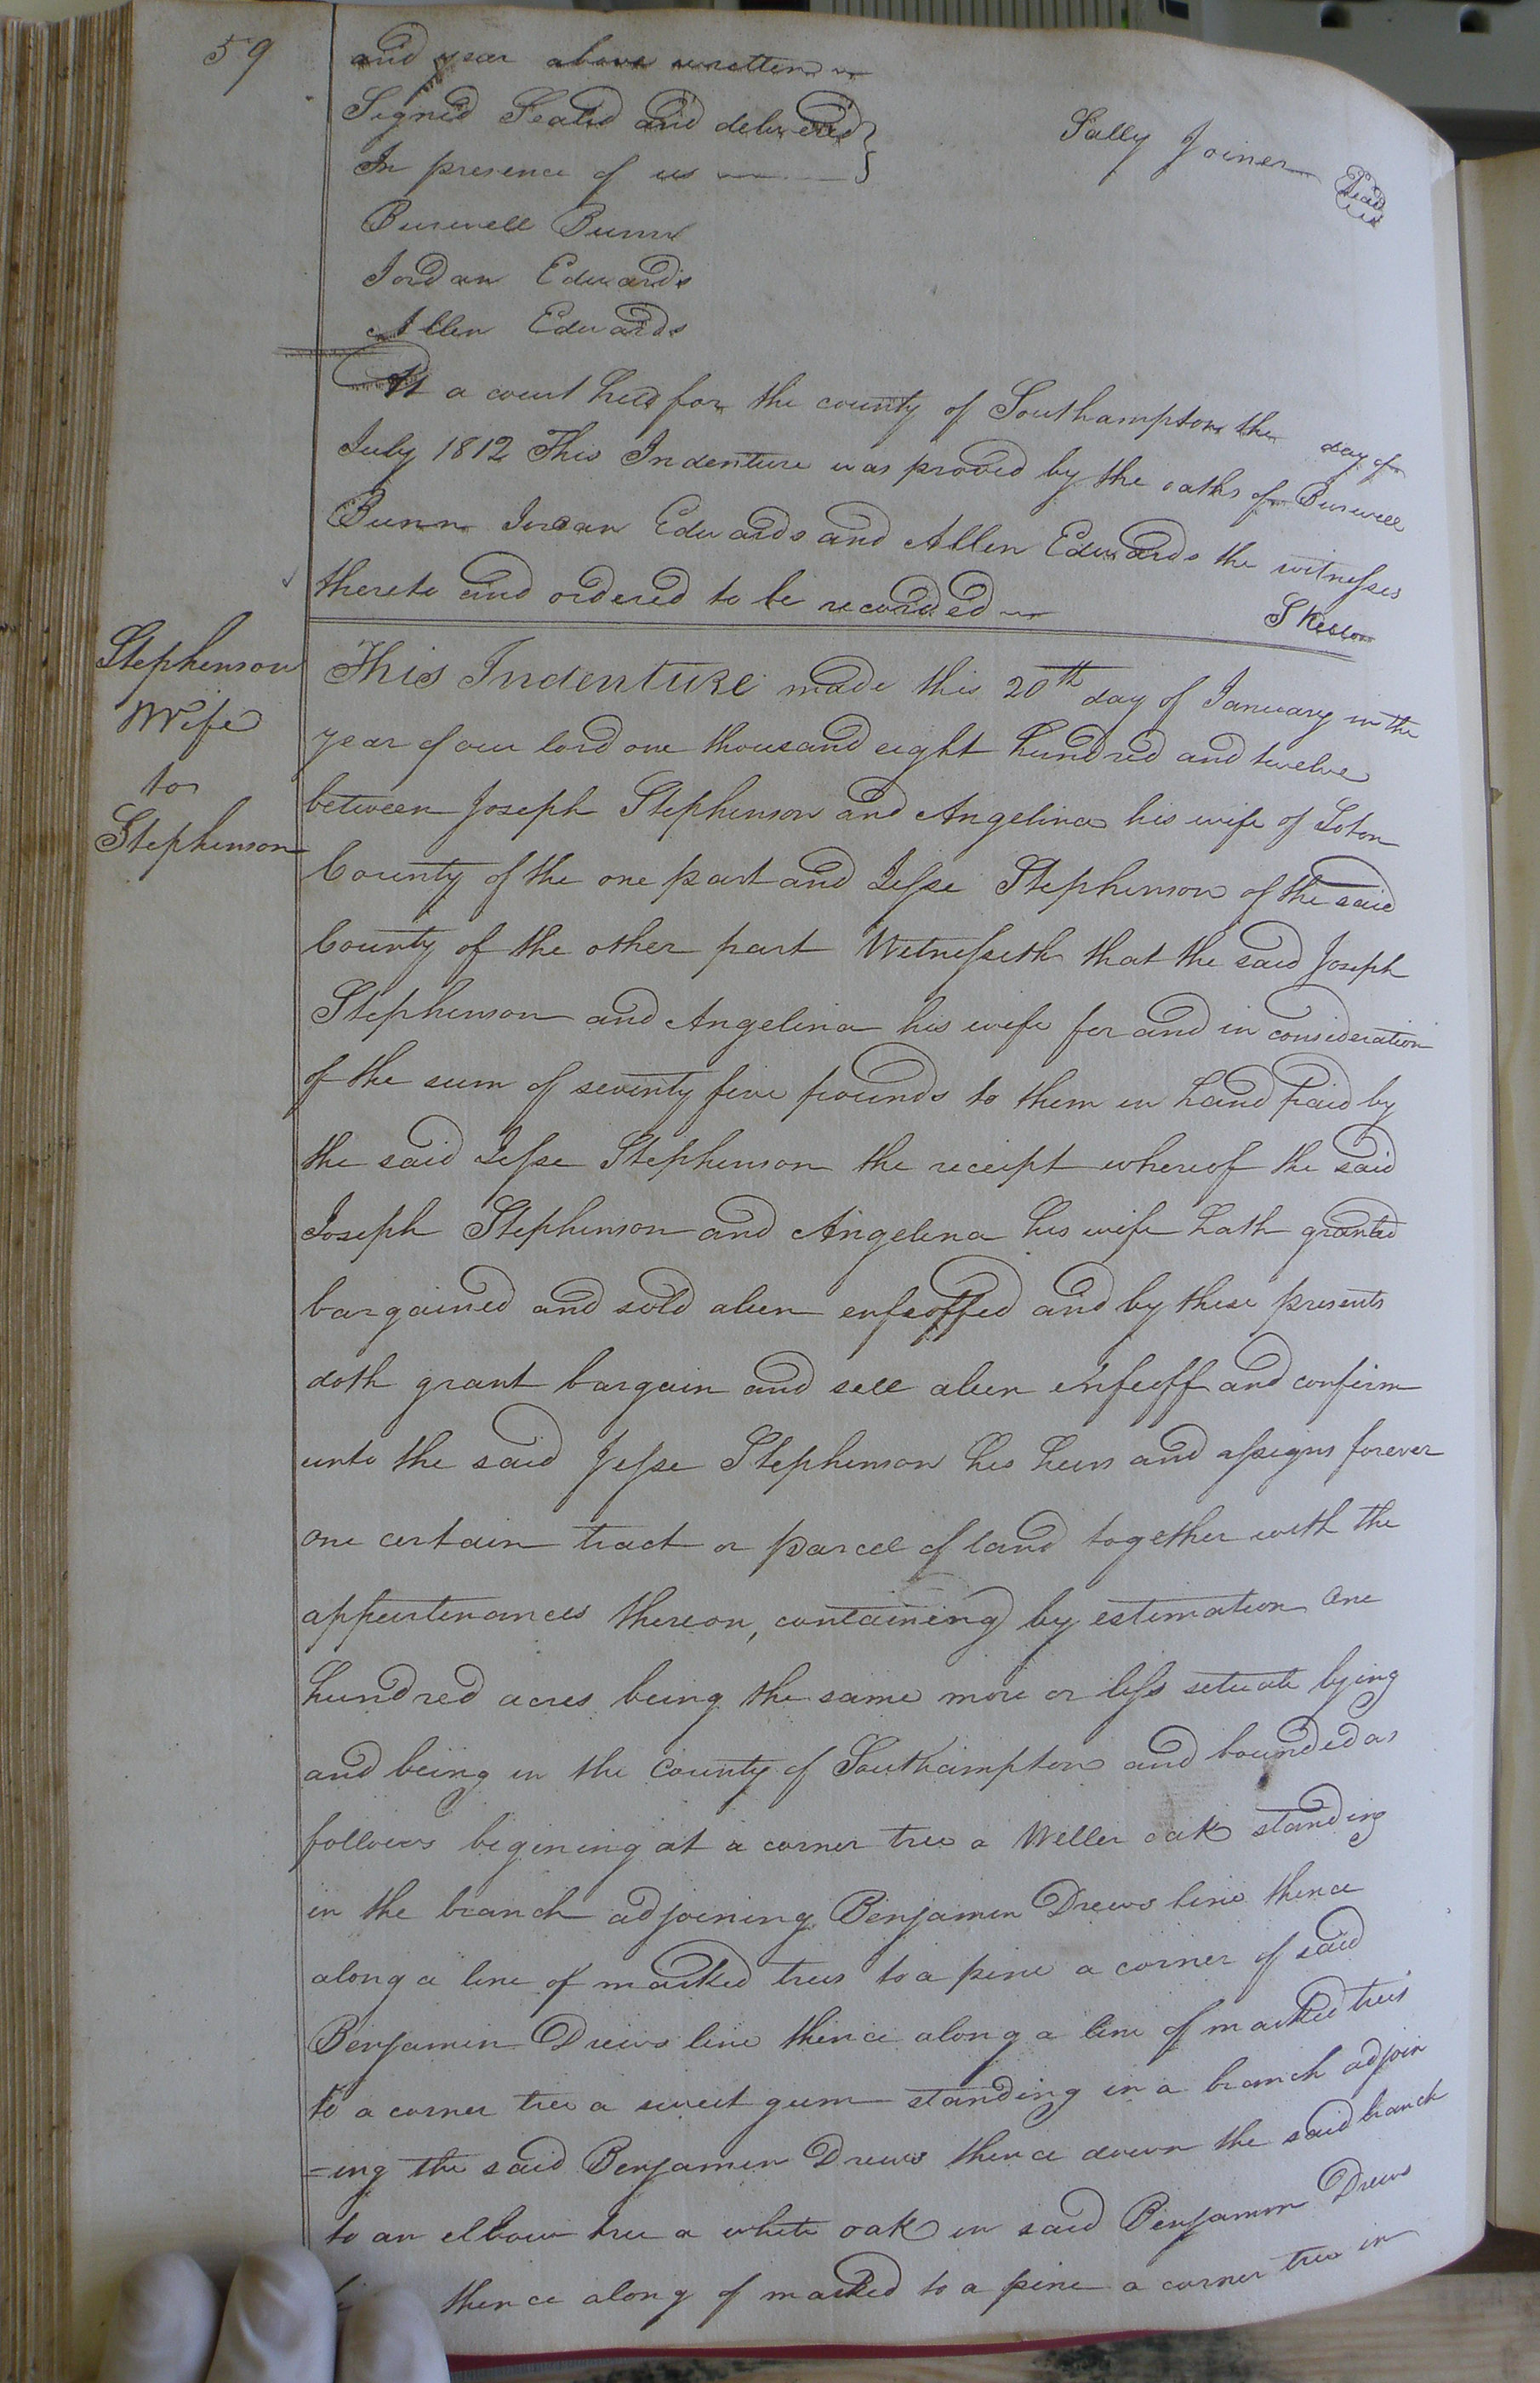 59
and year above written
Signed Sealed and delivered }
In presence of us }
Sally Joiner Seal
Burwell Bunn
Jordan Edwards
Allen Edwards
At a court held for the county of Southampton the day of
July 1812 This Indenture was proved by the oaths of Burwell
Bunn Jordan Edwards and Allen Edwards the witnesses
thereto and ordered to be recorded
Stephenson
Wife
to
Stephenson
This Indenture made this 20th day of January in the
year of our lord one thousand eight hundred and twelve
between Joseph Stephenson and Angelina his wife of Soton
County of the one part and Jesse Stephenson of the said
County of the other part Witnesseth that the said Joseph
Stephenson and Angelina his wife for and in consideration
of the sum of seventy five pounds to them in hand paid by
the said Jesse Stephenson the receipt whereof the said
Joseph Stephenson and Angelina his wife hath granted
bargained and sold alien enfeoffed and by these presents
doth grant bargain and sell alien enfeoff and confirm
unto the said Jesse Stephenson his heirs and assigns forever
one certain tract or parcel of land together with the
appurtenances thereon, containing by estimation one
hundred acres being the same more or less situate lying
and being in the County of Southampton and bounded as
follows begining at a corner tree a Weller oak standing
in the branch adjoining Benjamin Drews line thence
along a line of marked trees to a pine a corner of said
Benjamin Drews line thence along a line of marked trees
to a corner tree a sweet gum standing in a branch adjoin
=ing the said Benjamin Drews thence down the said branch
to an elbow tree a white oak in said Benjamin Drews
thence along of marked to a pine a corner tree in